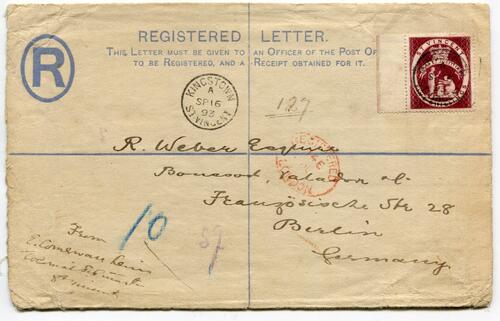 REGISTERED LETTER.
THIS LETTER MUST BE GIVEN TO AN OFFICER OF THE POST OF
TO BE REGISTERED, AND A RECEIPT OBTAINED FOR IT.
R
ST VINCENT
KINGSTOWN
A
SP 16
93
ST VINCENT
127
R. Weber Esquire
REGISTERED
LONDON
Französische Str 28
Berlin
Germany
10
From
E. Cornwall
St Vincent